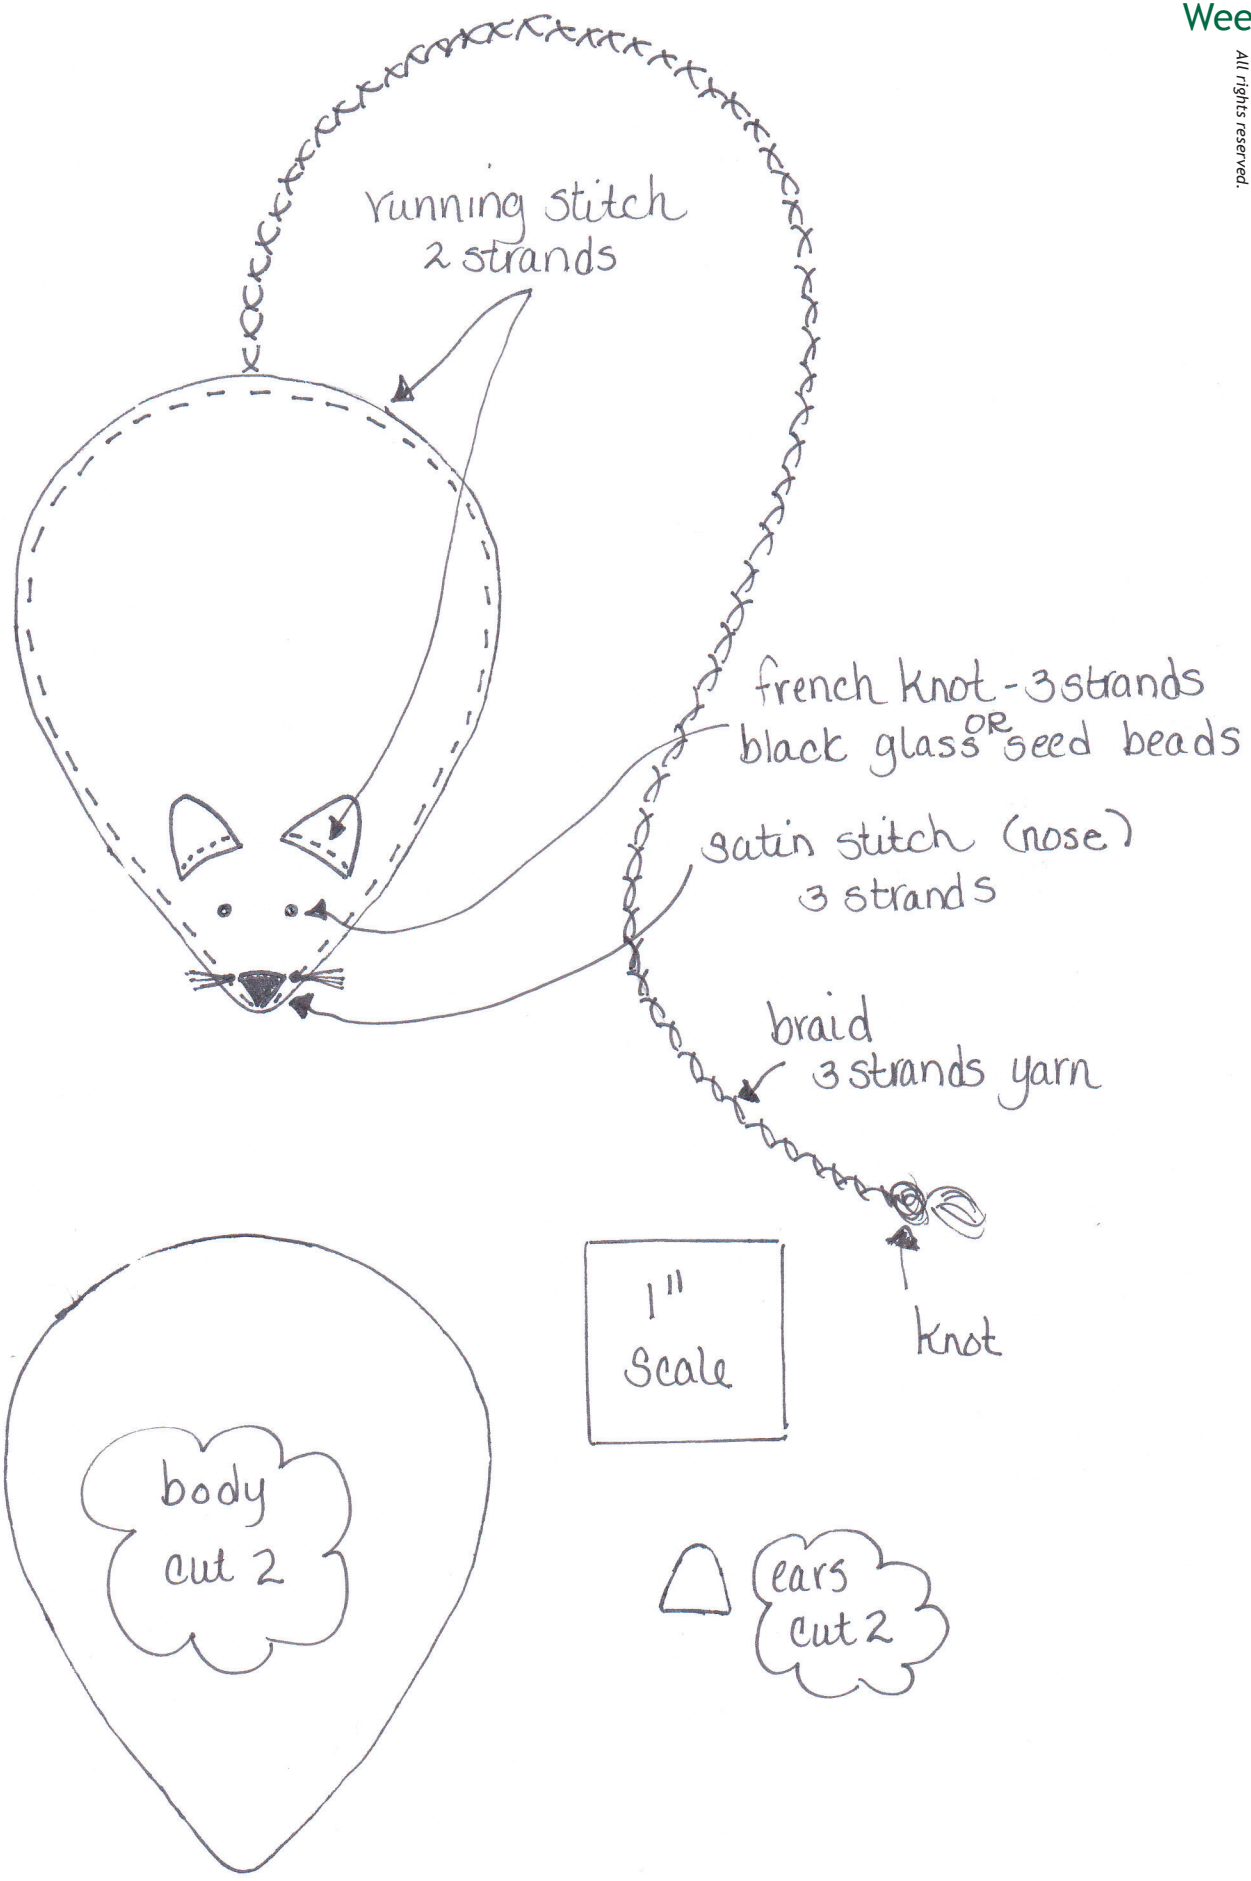 Wee
All rights reserved.
running stitch
2 strands
french knot - 3 strands
OR
black glass seed beads
satin stitch (nose)
3 strands
braid
3 strands yarn
knot
1"
Scale
body
cut 2
ears
cut 2